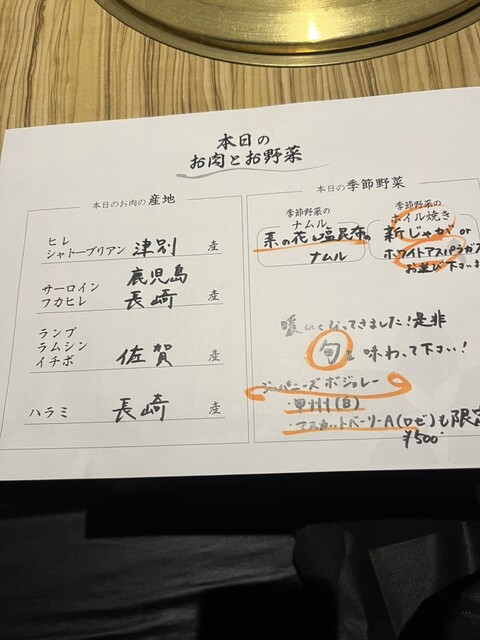 本日の
お肉とお野菜
本日のお肉の産地
ヒレ
シャトーブリアン 津別 産
サーロイン 鹿児島
フカヒレ 長崎 産
ランプ
ラムシン
イチボ 佐賀 産
ハラミ 長崎 産
本日の季節野菜
季節野菜の
ナムル
菜の花と塩昆布の
ナムル
季節野菜の
ホイル焼き
新じゃが or
ホワイトアスパラガス
お選び下さいま
暖かくなってきました!是非
旬を味わって下さい!
ジャパニーズボジョレー
・甲州(白)
・マスカットベーリーA(ロゼ)も限定
¥500